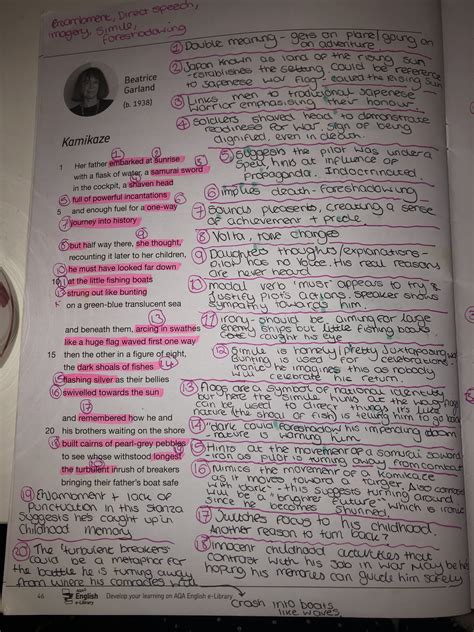 Enjambment, Direct speech,
imagery, simile,
foreshadowing
① Double meaning - gets on plane/going on
an adventure
② Japan known as land of the rising sun
- establishes the setting could be reference
to Japanese war flag called the rising sun
③ Links men to traditional Japenese
warrior emphasising their honour.
④ Soldiers shaved head to demonstrate
readiness for war, sign of being
dignified, even in death.
⑤ Suggests the pilot was under a
spell hints at influence of
propaganda. Indoctrinated.
⑥ Implies death - foreshadowing
⑦ Sounds pleasent, creating a sense
of achievement + pride
⑧ Volta, tone changes
⑨ Daughters thoughts/explanations -
pilot has no voice. His real reasons
are never heard
⑩ modal verb 'must' appears to try &
justify pilots actions. Speaker shows
sympathy towards him
⑪ irony - should be aiming for large
enemy ships but little fishing boats
caught his eye
⑫ Simile is homely/pretty juxtaposing
Bunting is used for celebrations -
ironic he imagines this as nobody
will celebrate his return.
⑬ Flags are a symbol of national identity
but here the simile hints at the way flags
can be used to direct things. It's like
nature (the shoal of fish) is telling him to go back
⑭ 'dark' could foreshadow his impending doom
- nature is warning him
⑮ Hints at the movement of a samurai sword
turning away from combat
⑯ Mimics the movement of a Kamikaze
as it moves toward a target. Also contrast
with 'dark' - this suggests turning around
will be a 'brighter future' which is ironic
since he becomes shunned.
⑰ Switches focus to his childhood.
Another reason to turn back?
⑱ Innocent childhood activities that
contrast with his job in war. Maybe he's
hoping his memories can guide him safely
Beatrice
Garland
(b. 1938)
Kamikaze
1 Her father embarked at sunrise
with a flask of water, a samurai sword
in the cockpit, a shaven head
full of powerful incantations
5 and enough fuel for a one-way
journey into history
but half way there, she thought,
recounting it later to her children,
he must have looked far down
10 at the little fishing boats
strung out like bunting
on a green-blue translucent sea
and beneath them, arcing in swathes
like a huge flag waved first one way
15 then the other in a figure of eight,
the dark shoals of fishes
flashing silver as their bellies
swivelled towards the sun
and remembered how he and
20 his brothers waiting on the shore
built cairns of pearl-grey pebbles
to see whose withstood longest
the turbulent inrush of breakers
bringing their father's boat safe
⑲ Enjambment + lack of
Punctuation in this stanza
suggests he's caught up in
Childhood memory
⑳ The 'turbulent breakers'
could be a metaphor for
the battle he is turning away
from where his comrades will
crash into boats
like waves
46
AQA
English
e-Library
Develop your learning on AQA English e-Library